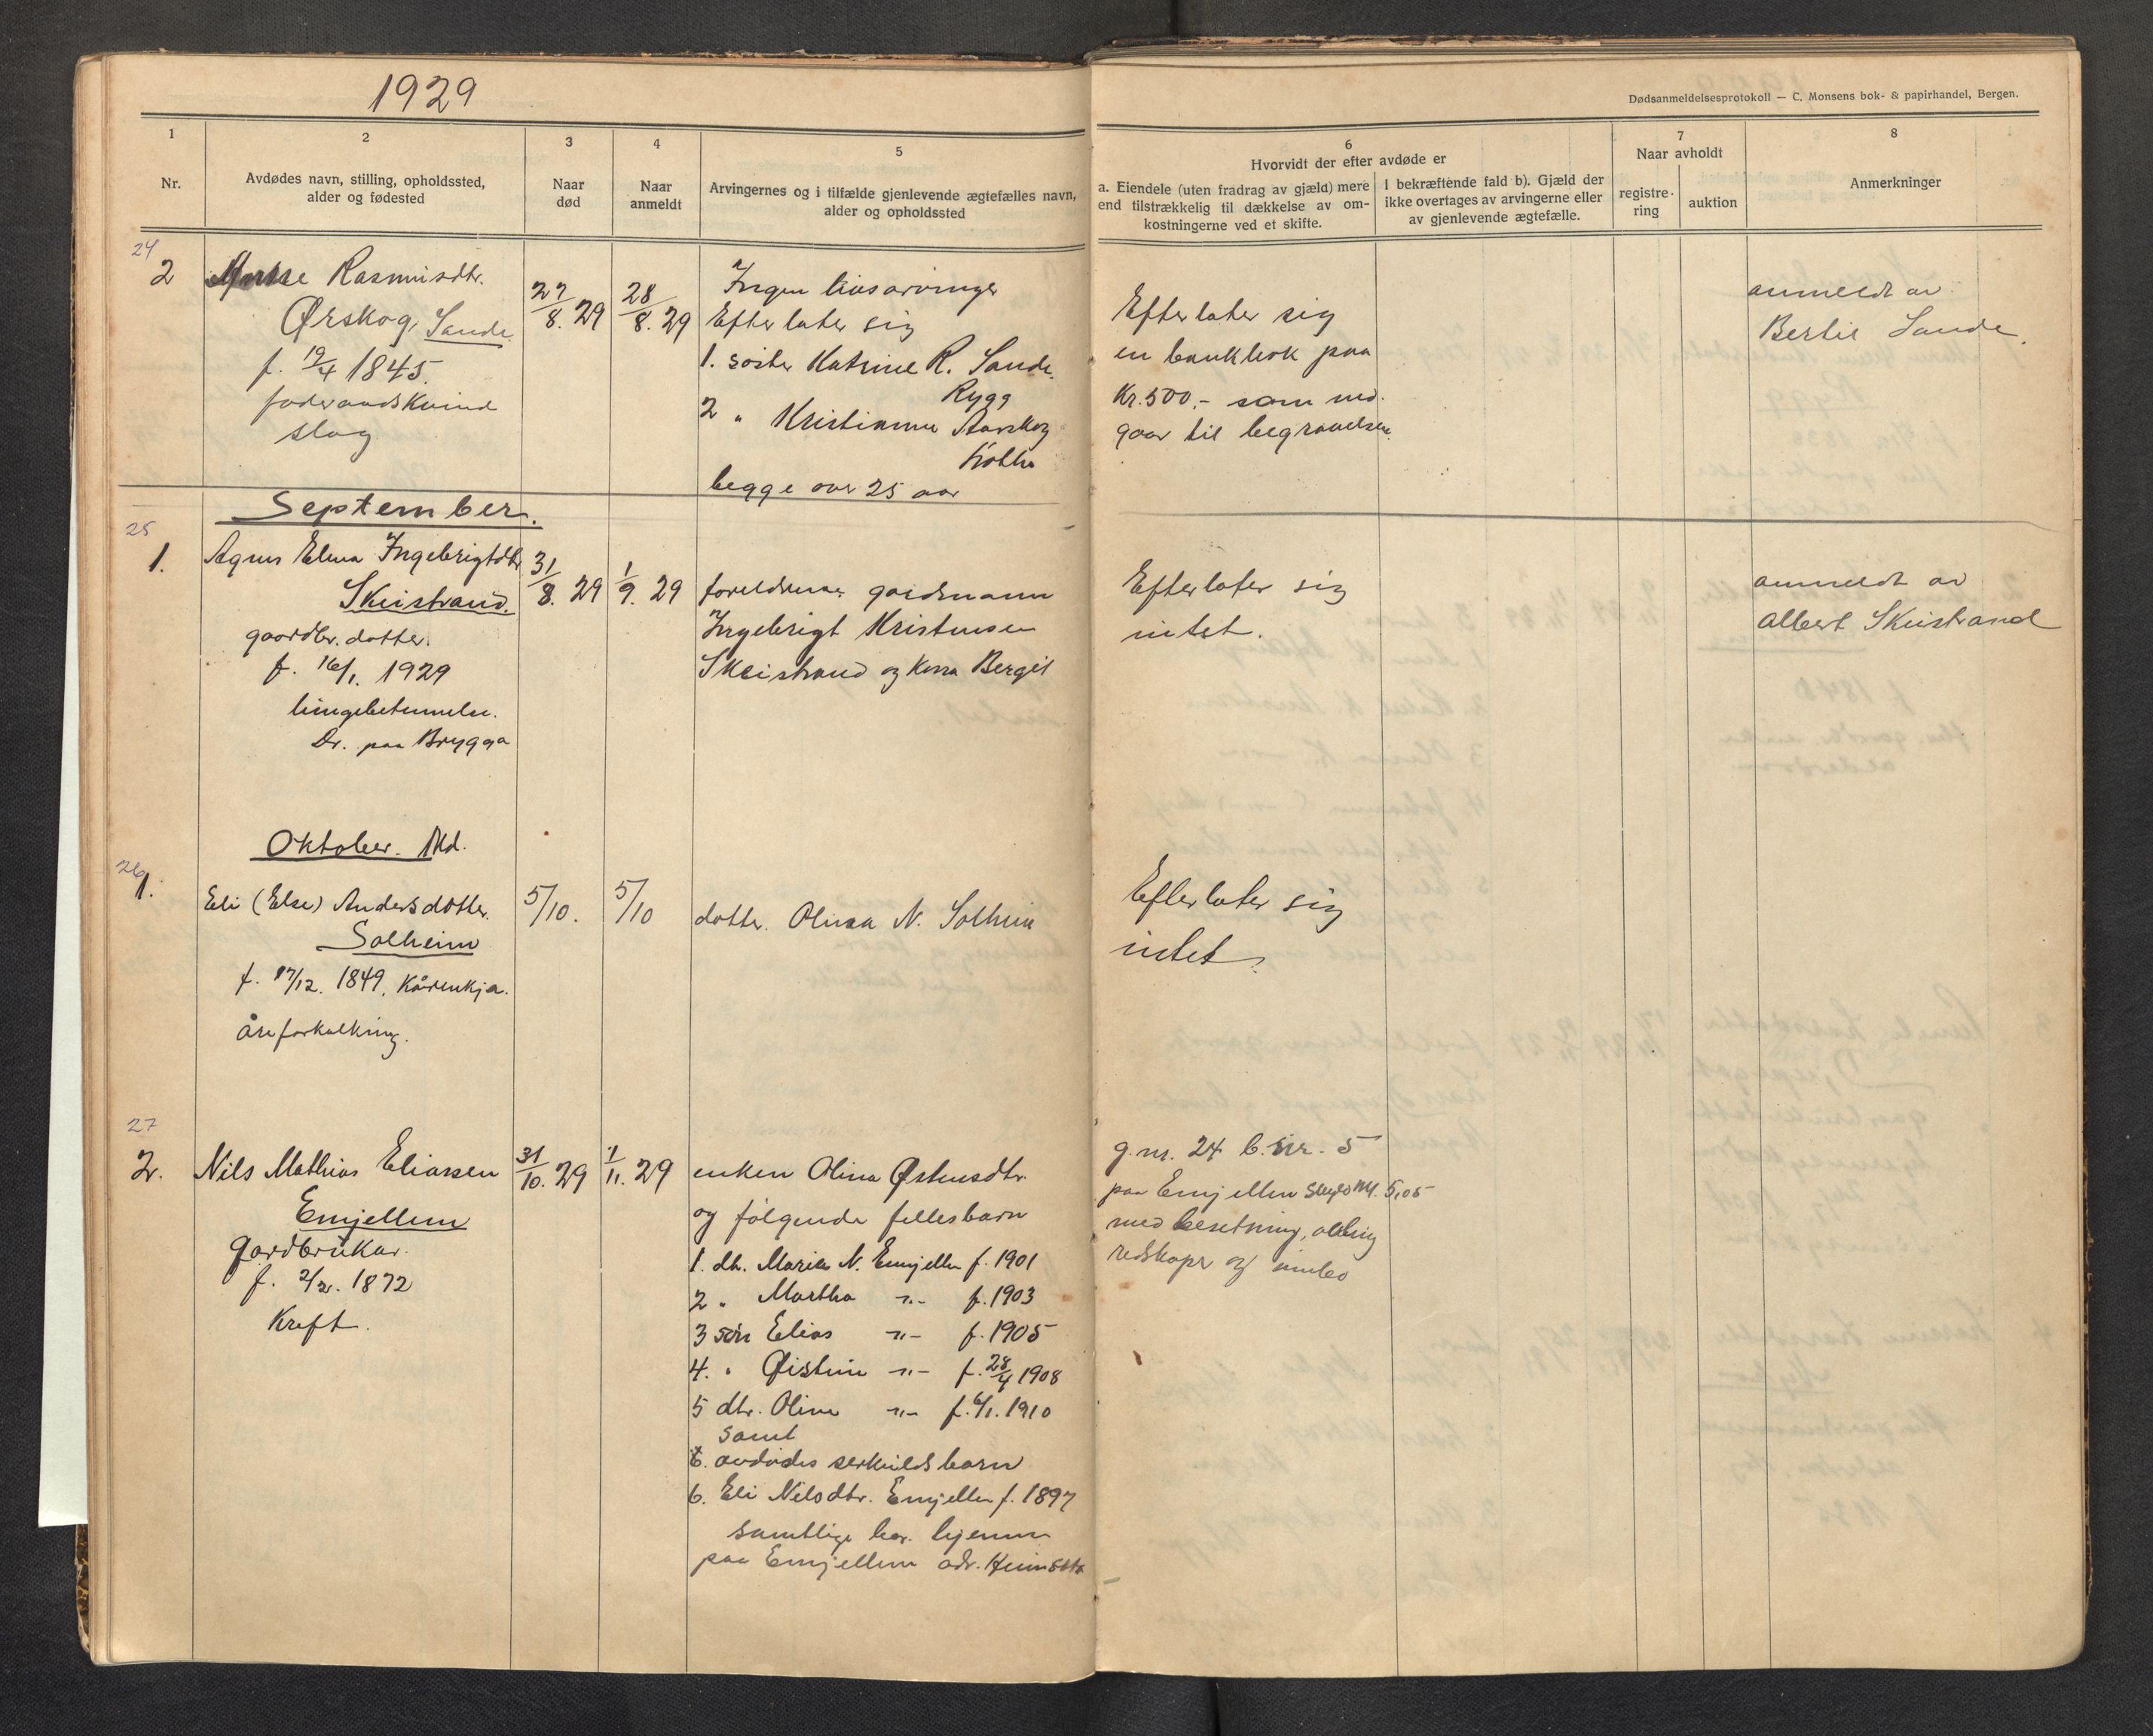 1929
Dødsanmeldelsesprotokoll — C. Monsens bok- & papirhandel, Bergen.
1
Nr.
2
Avdødes navn, stilling, opholdssted,
alder og fødested
3
Naar
død
4
Naar
anmeldt
5
Arvingernes og i tilfælde gjenlevende ægtefælles navn,
alder og opholdssted
6
Hvorvidt der efter avdøde er
a. Eiendele (uten fradrag av gjæld) mere
end tilstrækkelig til dækkelse av om-
kostningerne ved et skifte.
I bekræftende fald b). Gjæld der
ikke overtages av arvingerne eller
av gjenlevende ægtefælle.
7
Naar avholdt
registre-
ring
auktion
8
Anmerkninger
24
2
Rasmusdtr.
Ørskog, Sande
f. 19/4 1845.
slag
27/8. 29
28/8. 29
Ingen livsarvinger
Efterlater sig
1. søster Katrine R. Sande
Rygg
2 " Kristianna Aarskog
begge over 25 aar
Efterlater sig
en bankbok paa
Kr. 500,- som med-
gaar til begravelsen.
anmeldt av
Bertil Sande.
September.
25
1.
Agnes Elena Ingebrigtdtr
Skeistrand.
gaardbr. dotter.
f. 16/1. 1929
lungebetennelse.
Dr. paa Brygga
31/8. 29
1/9. 29
foreldrene gardmann
Ingebrigt Kristensen
Skeistrand og kona Bergit
Efterlater sig
intet.
anmeldt av
Albert Skeistrand
Oktober. Md.
26
1.
Eli (Else) Andersdotter.
Solheim
f. 17/12. 1849. Kårenkja.
åreforkalkning.
5/10.
5/10
dotter. Olina N. Solheim
Efterlater sig
intet.
27
2.
Nils Mathias Eliassen
Emjellem
Gardbrukar.
f. 2/2. 1872
Kreft.
31/10. 29
1/11. 29
enken Olina Østensdtr.
og følgende fellesbarn
1. dtr. Marie N. Emjellem f. 1901
2 " Martha -"- f. 1903
3 søn Elias -"- f. 1905
4. " Øistein -"- f. 28/4 1908
5 dtr. Oline -"- f. 6/1. 1910
samt
avdødes serkuldsbarn
6. Eli Nilsdtr. Emjellem f. 1897
samtlige har hjemme
paa Emjellem adr.
g.nr. 24 b.nr. 5
paa Emjellem skyld Mk. 5,05
med besetning, avling
redskaper og innbo